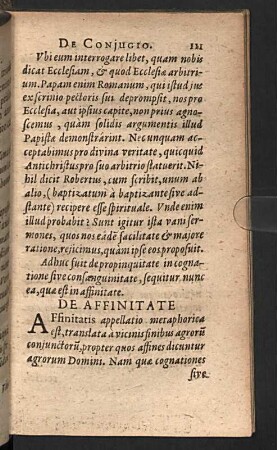 DE CONJUGIO. 121
Vbi eum interrogare libet, quam nobis
dicat Ecclesiam, & quod Ecclesiæ arbitri-
um. Papam enim Romanum, qui istud jus
ex scrinio pectoris sui deprompsit, nos pro
Ecclesia, aut ipsius capite, non prius agno-
scemus, quàm solidis argumentis illud
Papistæ demonstrârint. Nec unquam ac-
ceptabimus pro divina veritate, quicquid
Antichristus pro suo arbitrio statuerit. Ni-
hil dicit Robertus, cum scribit, unum ab
alio, (baptizatum à baptizante sive ad-
stante) recipere esse spirituale. Vnde enim
illud probabit? Sunt igitur ista vani ser-
mones, quos nos eâdē facilitate & majore
ratione, rejicimus, quàm ipse eos proposuit.
Adhuc fuit de propinquitate in cogna-
tione sive consanguinitate, sequitur nunc
ea, quæ est in affinitate.
DE AFFINITATE
AFfinitatis appellatio metaphorica
est, translata à vicinis finibus agrorū
conjunctorū, propter quos affines dicuntur
agrorum Domini. Nam quæ cognationes
sive